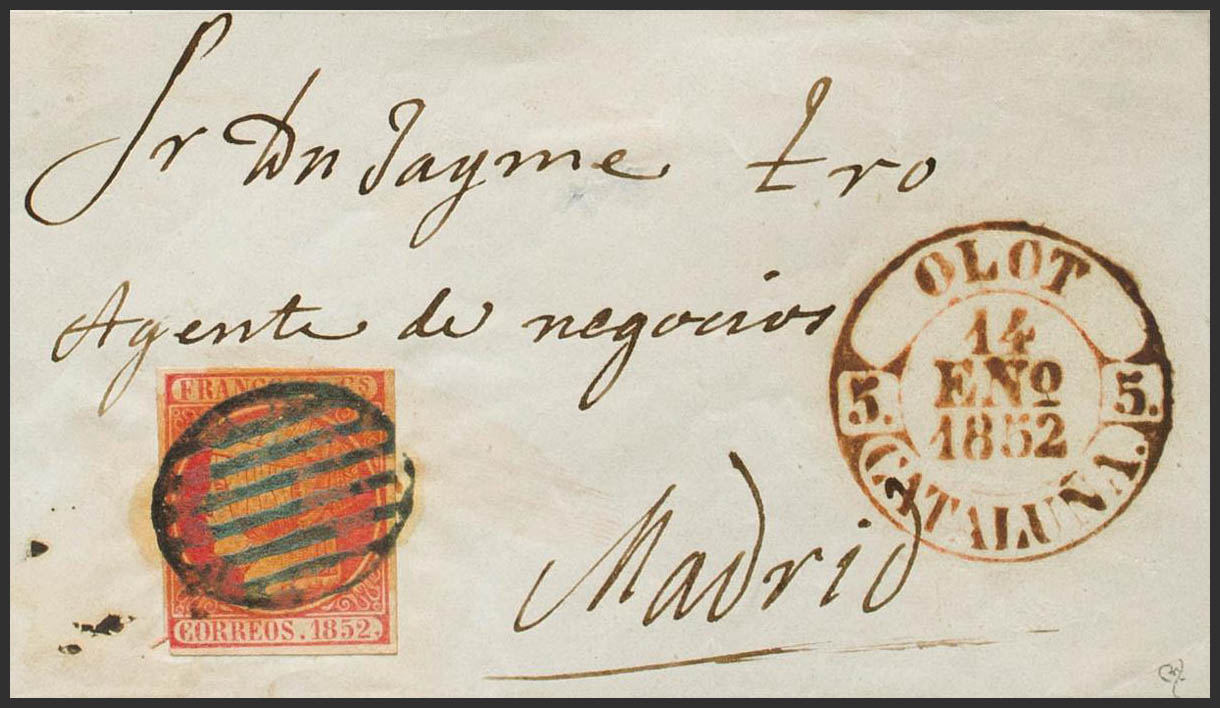 Sr Dn Jayme tro
Agente de negocios
Madrid
OLOT
14
ENº
1852
5. 5.
CATALUÑA.
FRANCO
CS
CORREOS. 1852.